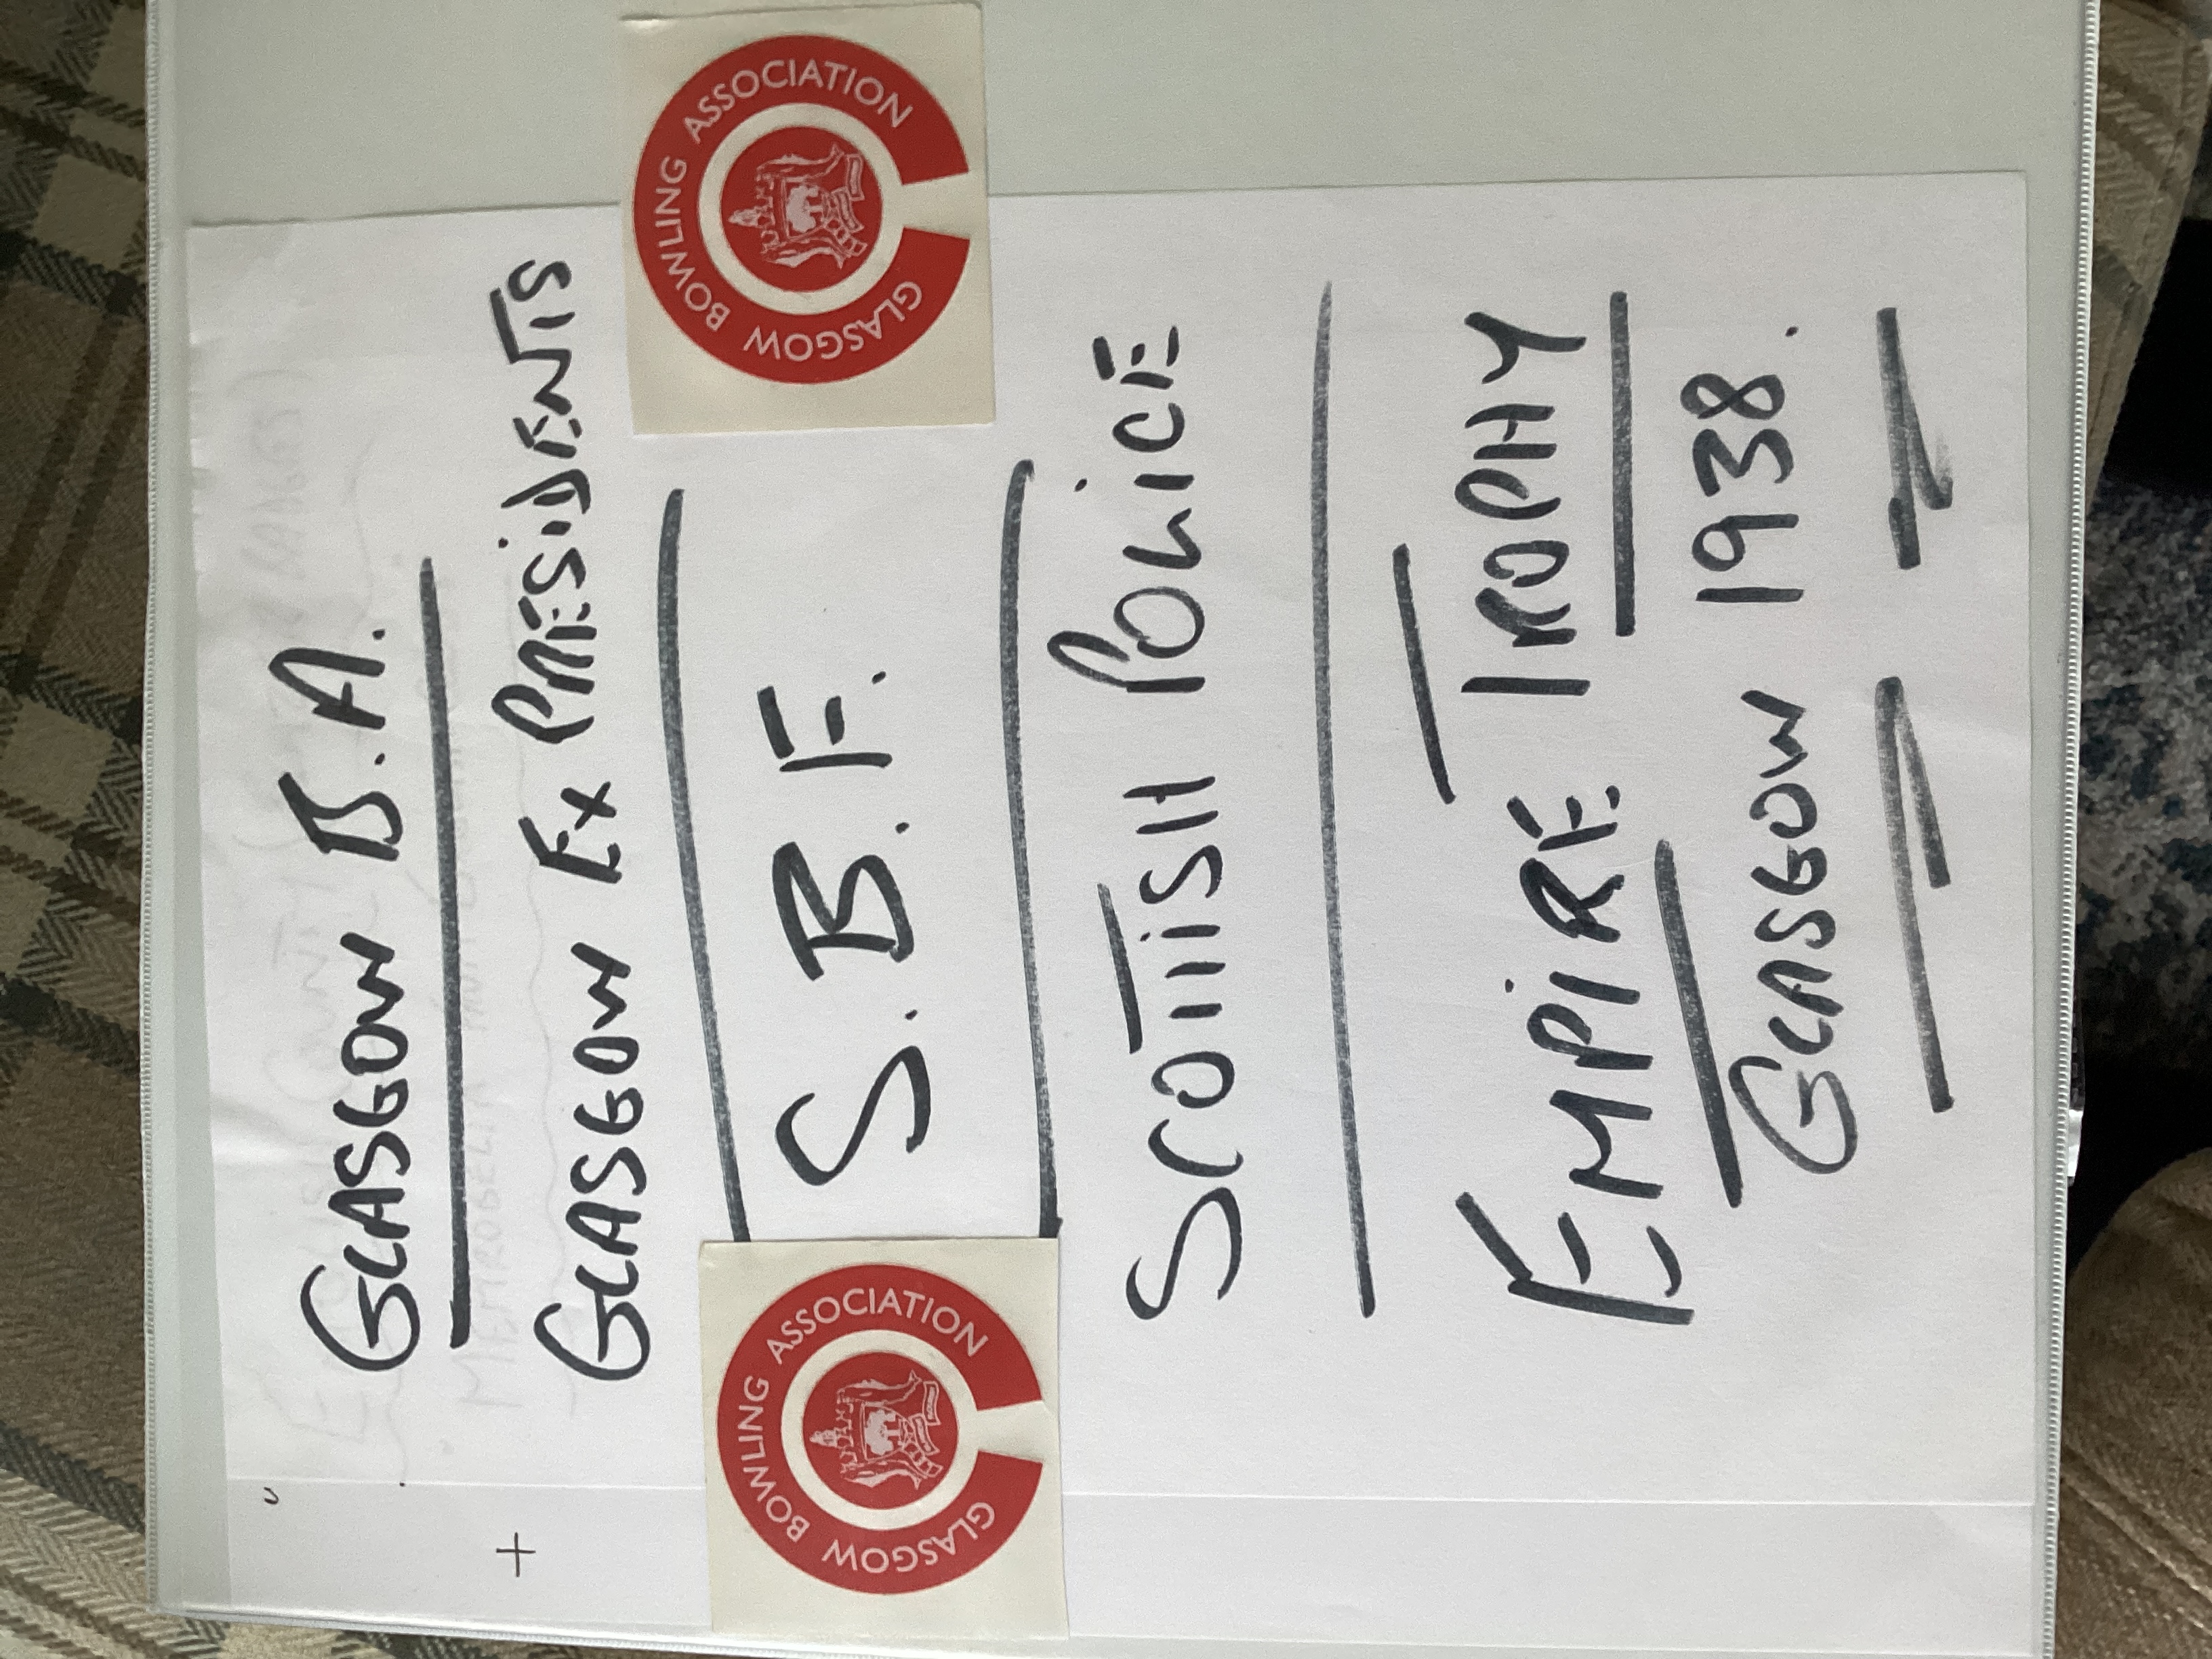 GLASGOW B.A.
GLASGOW EX PRESIDENTS
GLASGOW BOWLING ASSOCIATION
S.B.F.
GLASGOW BOWLING ASSOCIATION
SCOTTISH POLICE
EMPIRE TROPHY
GLASGOW 1938.